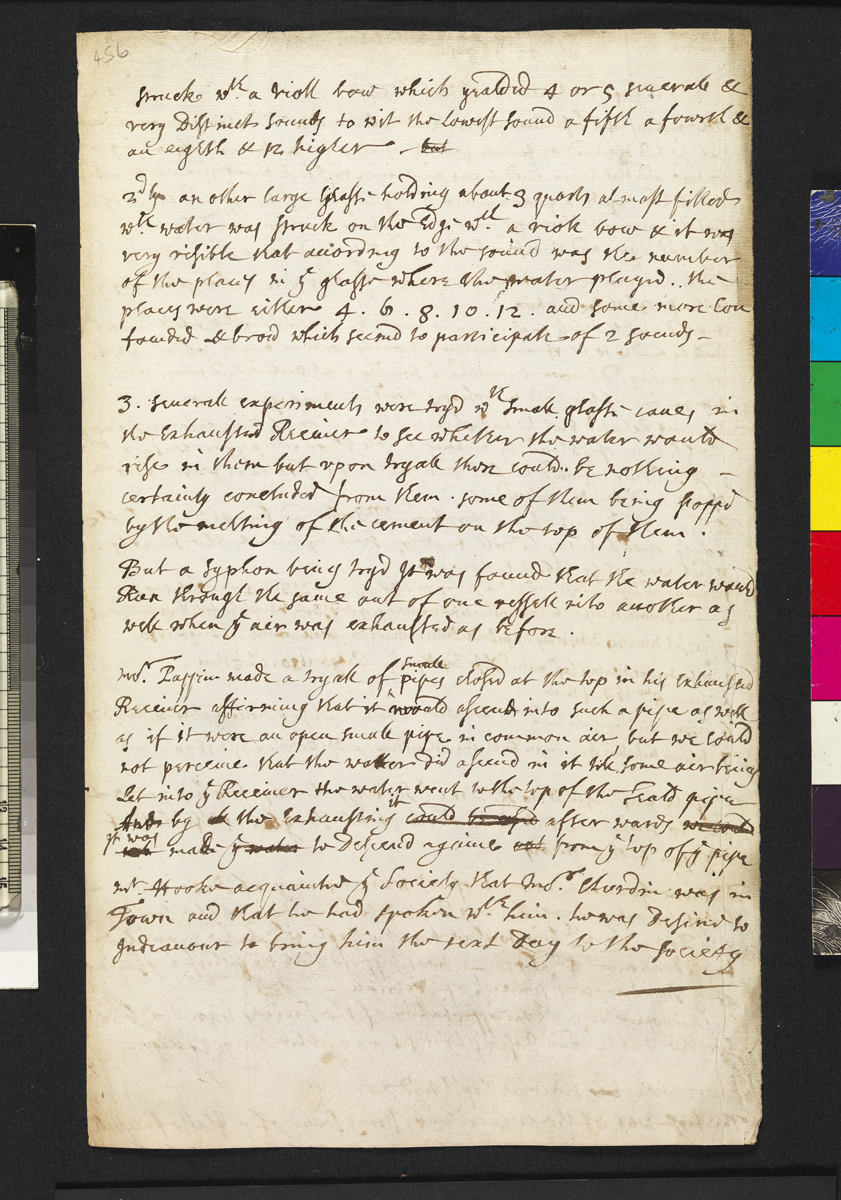 456
struck wth. a violl bow which yealded 4 or 5 severall &
very Distinct sounds to wit the lowest sound a fifth a fowrth &
an eighth & 12 higher - but
2dly an other large Glasse holding about 3 quarts almost filled
wth water was struck on the Edge wth a violl bow & it was
very visible that according to the sound was the number
of the places in ye glasse where the water playd.. the
places were either 4 . 6 . 8 . 10 . 12 . and some more Con
founded & broad which seemd to participate of 2 sounds -
3. severall experiments were tryd wth small glasse canes in
the Exhausted Receiver to see whether the water would
rise in them but vpon tryall there could be nothing -
certainly concluded from them . some of them being stoppd
by the melting of the cement on the top of them .
But a syphon being tryd It was found that the water would
Run through the same out of one vessell into another as
well when ye air was exhausted as before .
Mor. Pappin made a tryall of small pipes closed at the top in his Exhausted
Receiver affirming that it would ascend into such a pipe as well
as if it were an open small pipe in common air, but we could
not perceive that the water did ascend in it till some air being
Let into ye Receiver the water went to the top of the seald pipe
And by the Exhausting it could be after wards we could
it was made ye water to Descend againe out from ye top of ye pipe
mr. Hooke acquainted ye Society that Mor. Chardin was in
Town and that he had spoken wth him . he was Desired to
Indeavour to bring him the next Day to the Society